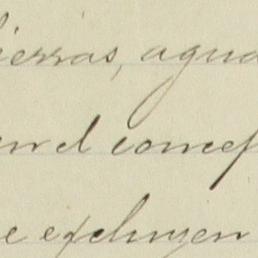 tierras, agua
en el concep
e excluyen